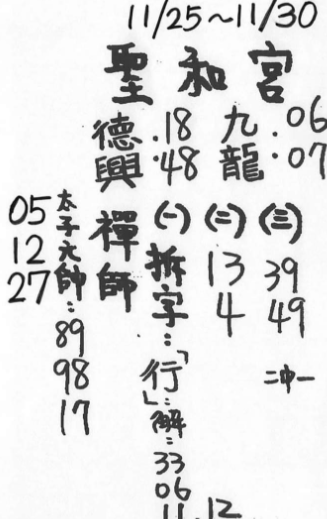 11/25~11/30
聖和宮
德興 .18 .48
九龍 .06 .07
禪師
(一)
拆字:「行」:解:
33
06
11.12
(二)
13
4
(三)
39
49
二中一
太子元帥:
89
98
17
05
12
27